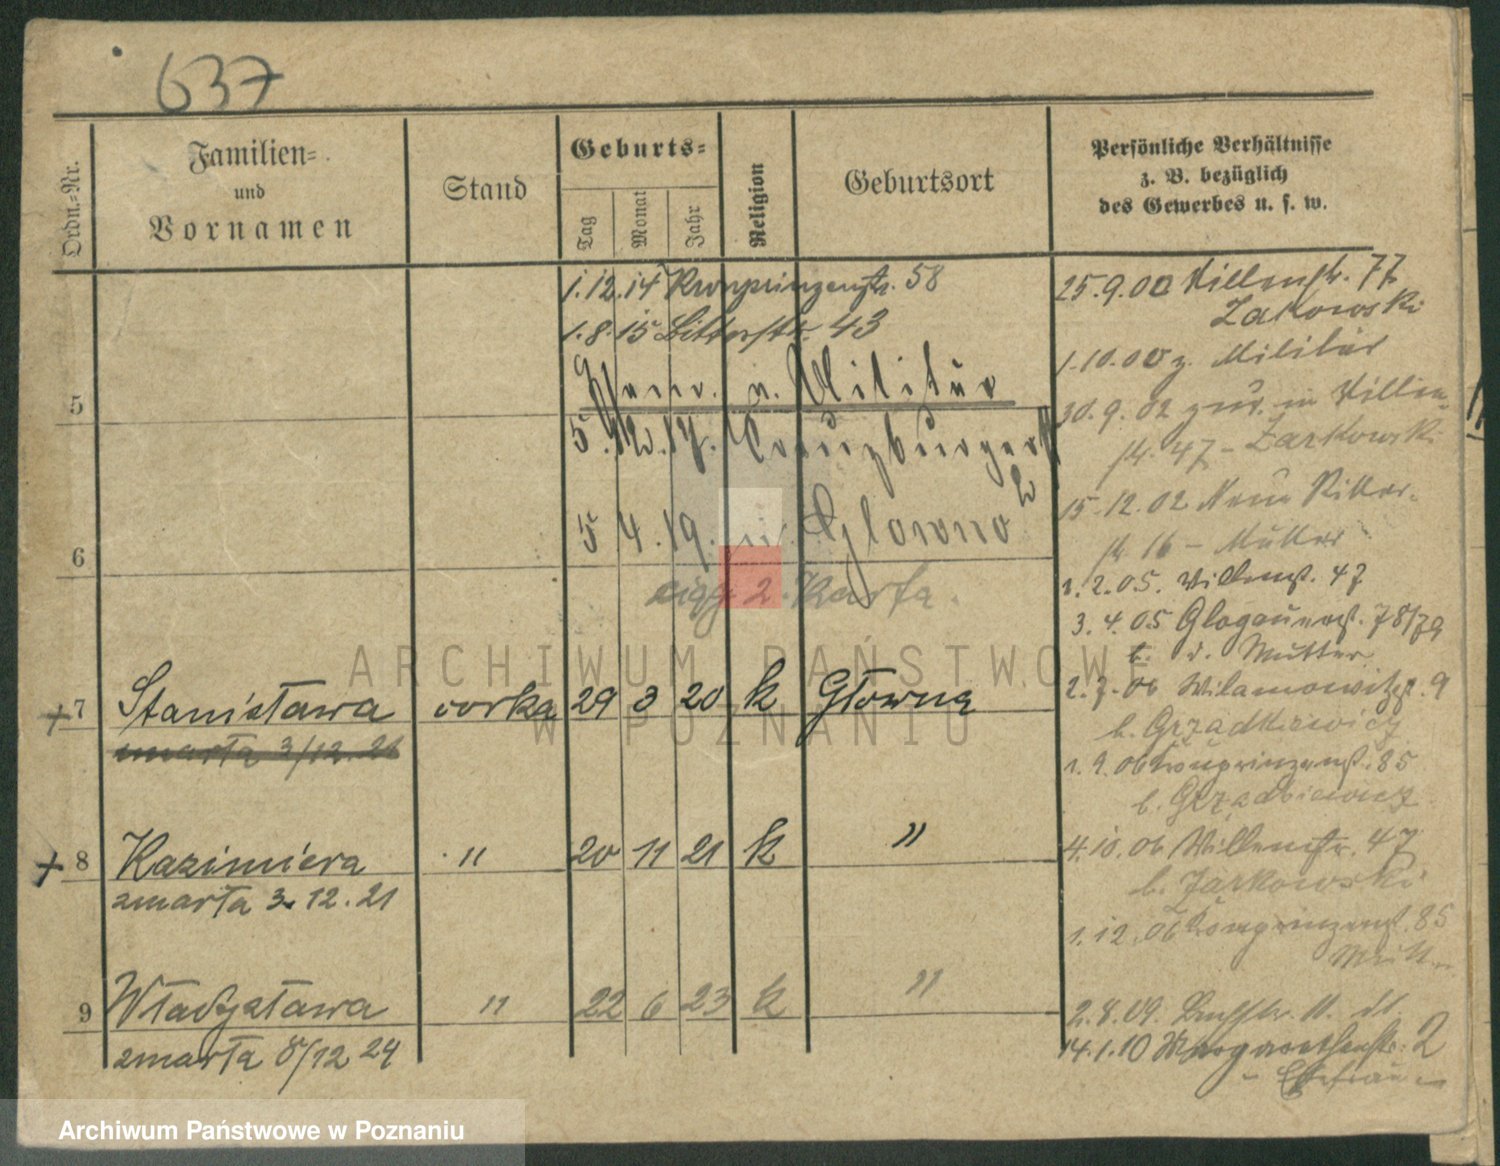 637
Ordn.=Nr.
Familien=
und
Vornamen
Stand
Geburts=
Tag
Monat
Jahr
Religion
Geburtsort
Persönliche Verhältnisse
z. B. bezüglich
des Gewerbes u. s. w.
1.12.14 Kronprinzenstr. 58
1.8.15 Bitterstr. 43
z. Militär
5
5.12.17. Kreuzburgerstr
2
5 4.19. Glowno
6
ciąg 2. Karta.
7 Stanisława córka 29 3 20 k Główna
zmarła 3/12.21
8 Kazimiera " 20 11 21 k "
zmarła 3.12.21
9 Władysława " 22 6 23 k "
zmarła 8/12 24
25.9.00 Villenstr. 77
Zakowski
1.10.00 z. Militär
30.9.02 zur. in Villen-
str. 47 - Żarkowski
15.12.02 Neue Ritter-
str 16 - Mutter
1.2.05. Villenst. 47
3.4.05 Glogauerst. 78/79
b. d. Mutter
2.7.06 Wilamowitzst. 9
b. Grządkiewicz
1.9.06 Kronprinzenst. 85
b. Grządkiewicz
4.10.06 Willenstr. 47
b. Żarkowski
1.12.06 Kronprinzenst. 85
2.8.09.
14.1.10 Margarethenstr. 2
- Ehefrau -
ARCHIWUM PAŃSTWOWE
W POZNANIU
Archiwum Państwowe w Poznaniu